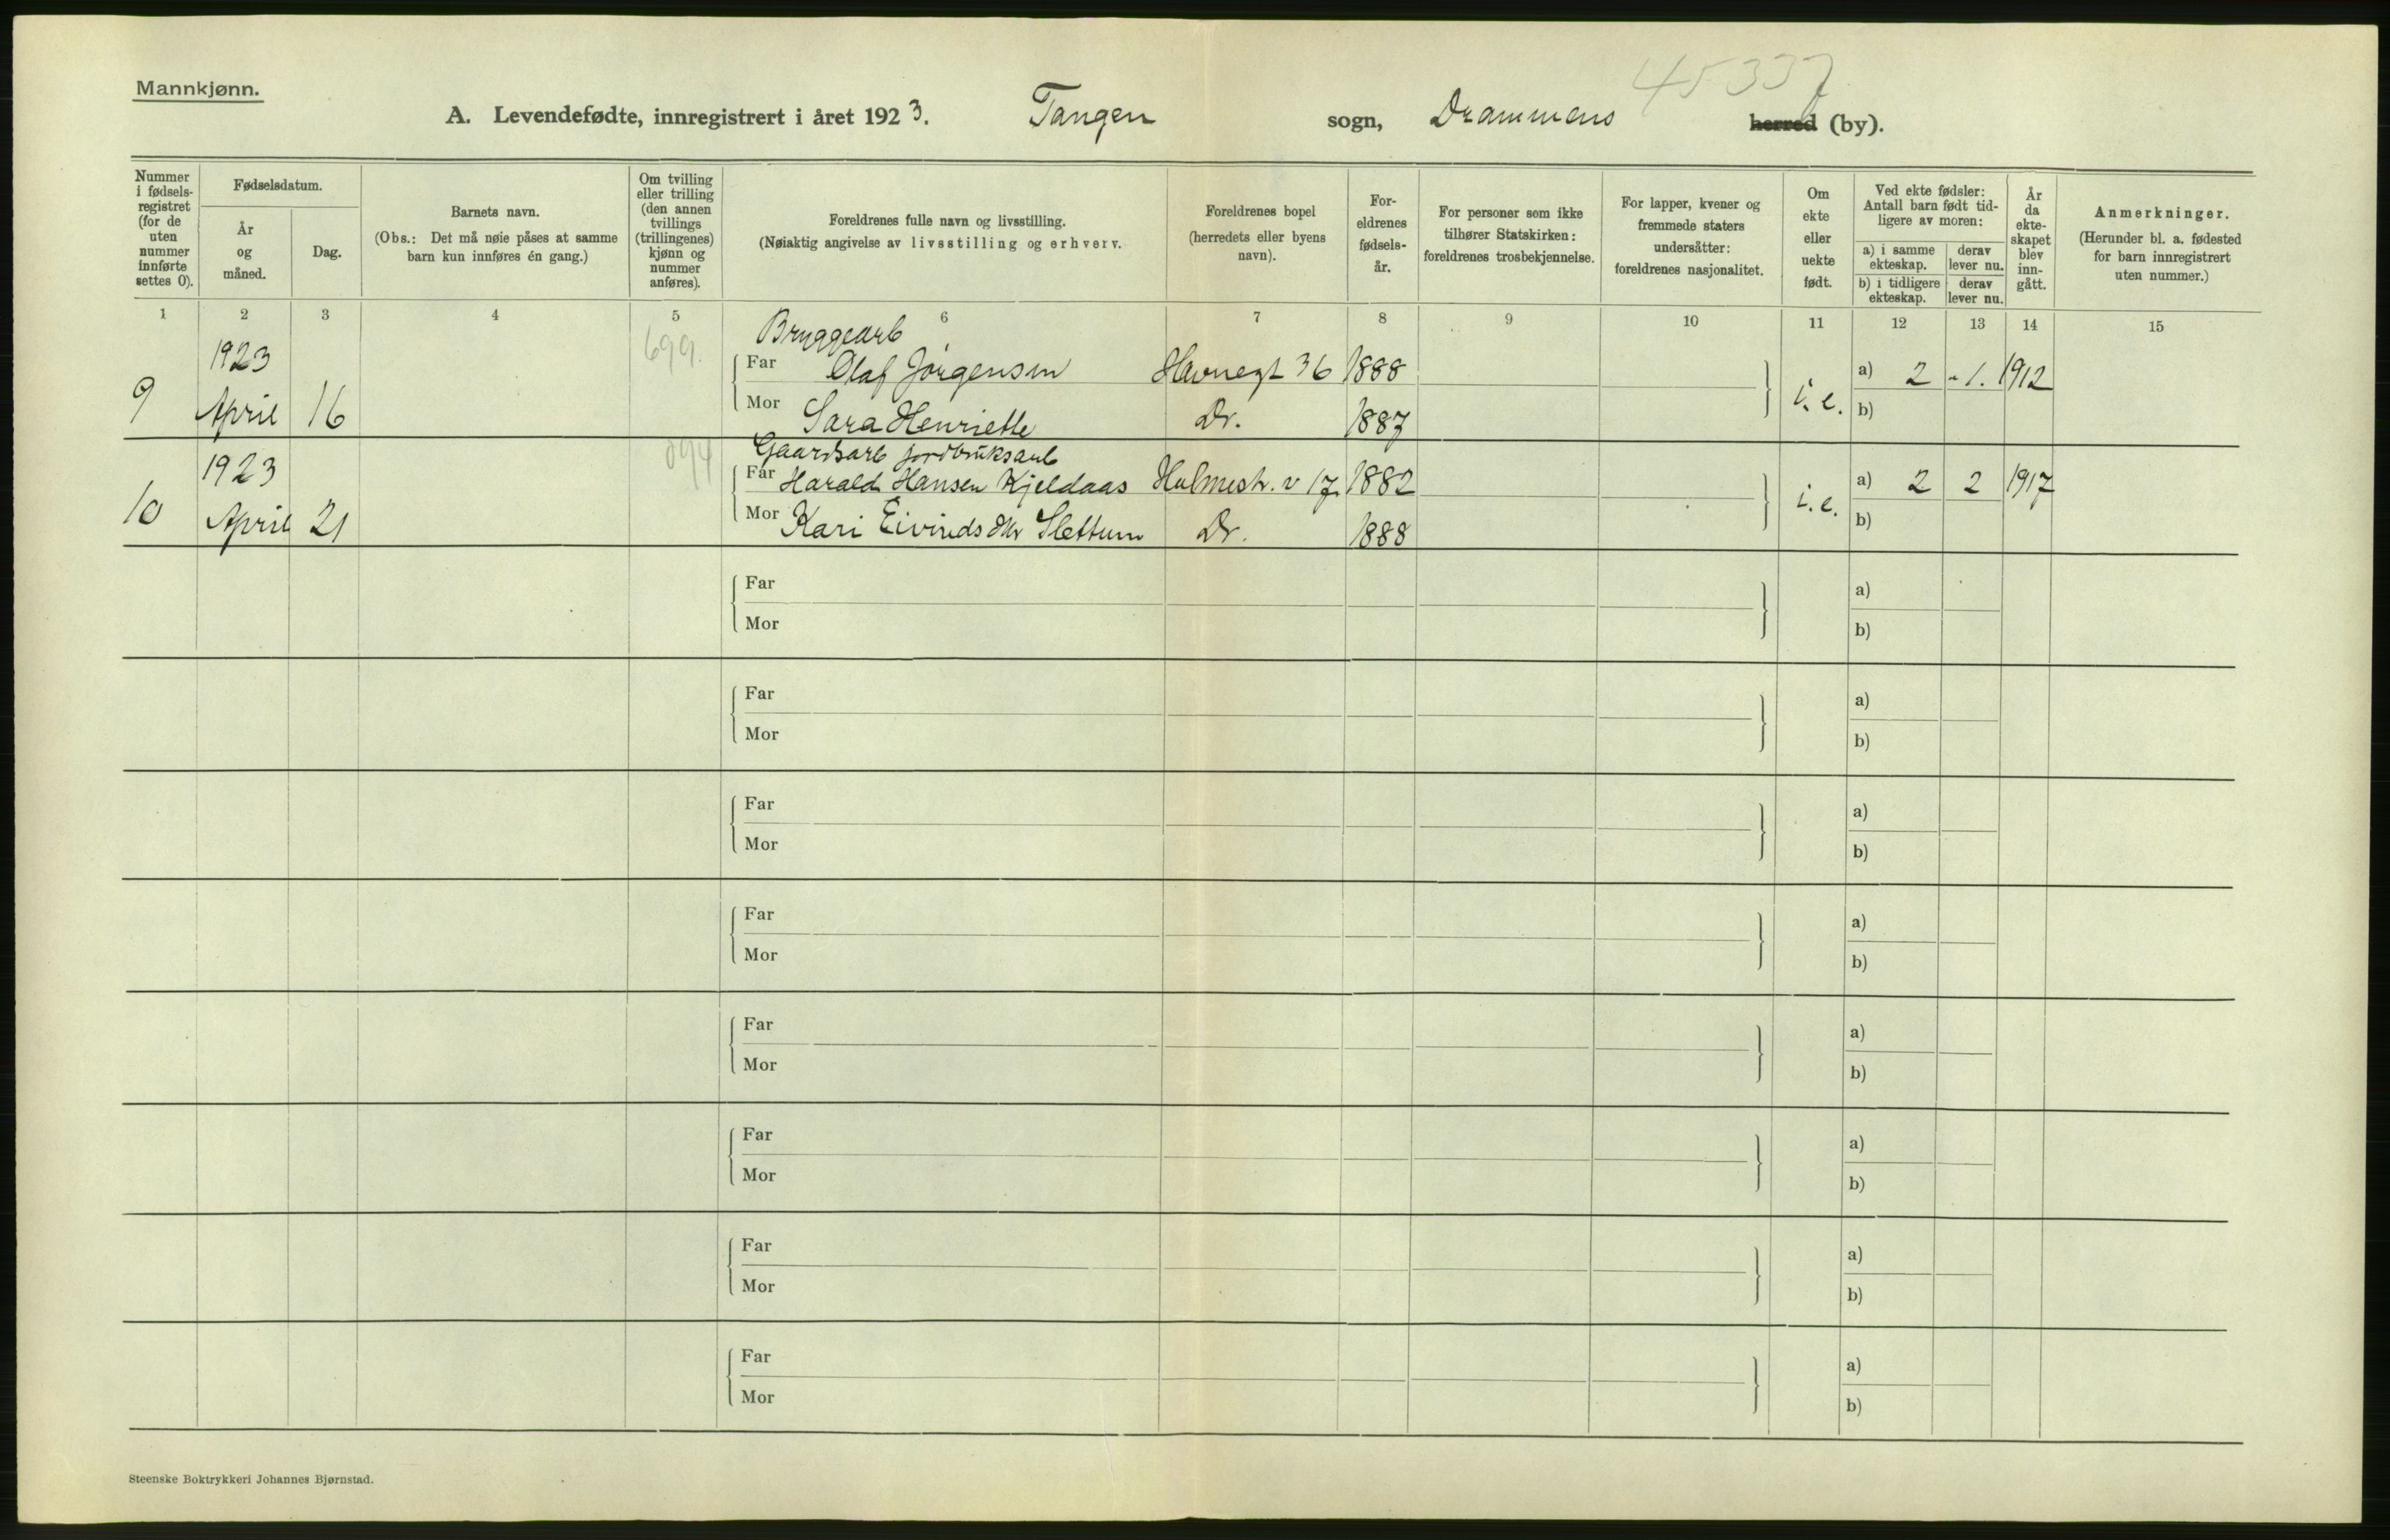 Mannkjønn.
45337
A. Levendefødte, innregistrert i året 1923. Tangen sogn, Drammens herred (by).
Nummer i fødsels-registret (for de uten nummer innførte settes 0).
Fødselsdatum.
År og måned.
Dag.
Barnets navn.
(Obs.: Det må nøie påses at samme barn kun innføres én gang.)
Om tvilling eller trilling (den annen tvillings (trillingenes) kjønn og nummer anføres).
Foreldrenes fulle navn og livsstilling.
(Nøiaktig angivelse av livsstilling og erhverv.
Foreldrenes bopel (herredets eller byens navn).
For-eldrenes fødsels-år.
For personer som ikke tilhører Statskirken: foreldrenes trosbekjennelse.
For lapper, kvener og fremmede staters undersåtter: foreldrenes nasjonalitet.
Om ekte eller uekte født.
Ved ekte fødsler: Antall barn født tid-ligere av moren:
a) i samme ekteskap.
derav lever nu.
b) i tidligere ekteskap.
derav lever nu.
År da ekte-skapet blev inn-gått.
Anmerkninger.
(Herunder bl. a. fødested for barn innregistrert uten nummer.)
1 2 3 4 5 6 7 8 9 10 11 12 13 14 15
1923 699. Bryggearb
Far Olaf Jørgensen Havnegt 36 1888 a) 2 - 1. 1912
9 April 16 Mor Sara Henriette Dr. 1887 i. e. b)
1923 Gaardsarb jordbruksarb
Far Harald Hansen Kjeldaas Holmestr. v 17. 1882 a) 2 2 1917
10 April 21 Mor Kari Eivindsdtr Slettum Dr. 1888 i. e. b)
Far a)
Mor b)
Far a)
Mor b)
Far a)
Mor b)
Far a)
Mor b)
Far a)
Mor b)
Far a)
Mor b)
Far a)
Mor b)
Far a)
Mor b)
Steenske Boktrykkeri Johannes Bjørnstad.